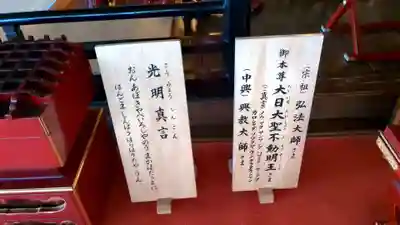 (宗祖) 弘法大師さま
御本尊 大日大聖不動明王さま
(中興) 興教大師さま
光明真言
こうみょうしんごん
おんあぼきゃべいろしゃのうまかぼだらまに
はんどまじんばらはらばりたやうん